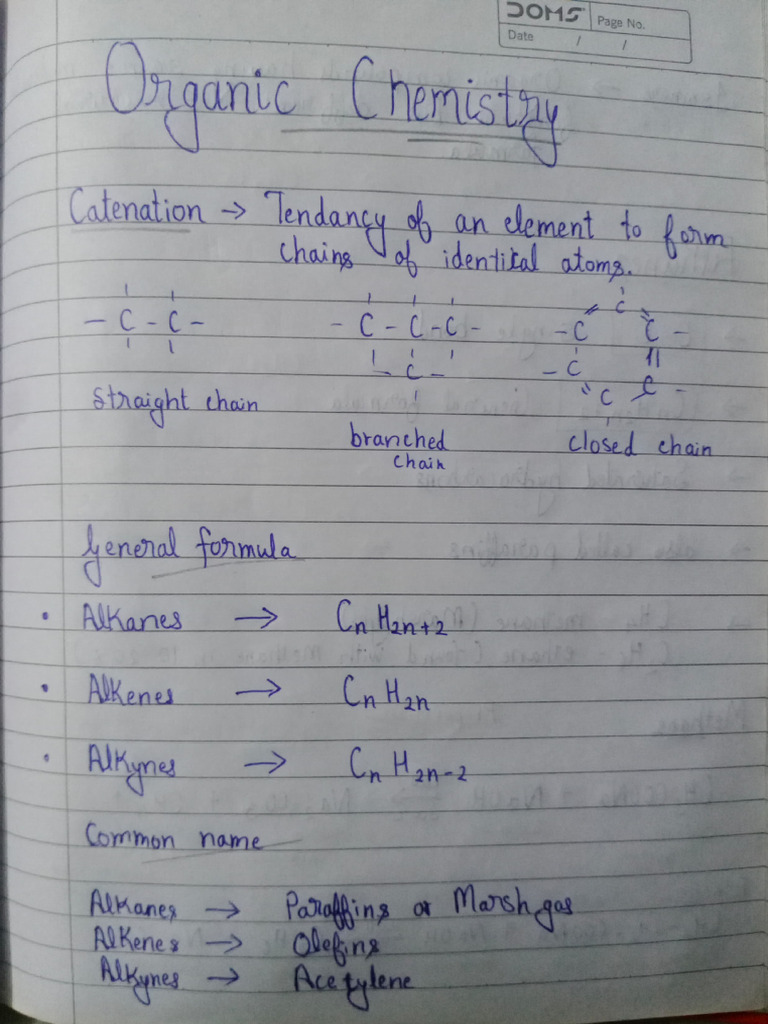 DOMS
Page No.
Date / /
Organic Chemistry
Catenation → Tendancy of an element to form
chains of identical atoms.
- C - C -
- C - C - C -
- C -
- C C -
- C
C C -
C
straight chain
branched
chain
closed chain
General formula
• Alkanes → CnH2n+2
• Alkenes → CnH2n
• Alkynes → CnH2n-2
Common name
Alkanes → Paraffins or Marsh gas
Alkenes → Olefins
Alkynes → Acetylene